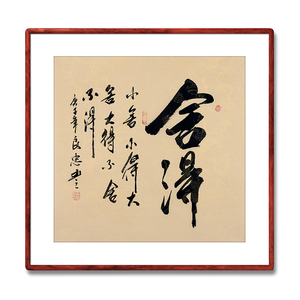 舍得
小舍小得大
舍大得不舍
不得
庚子年良忠书